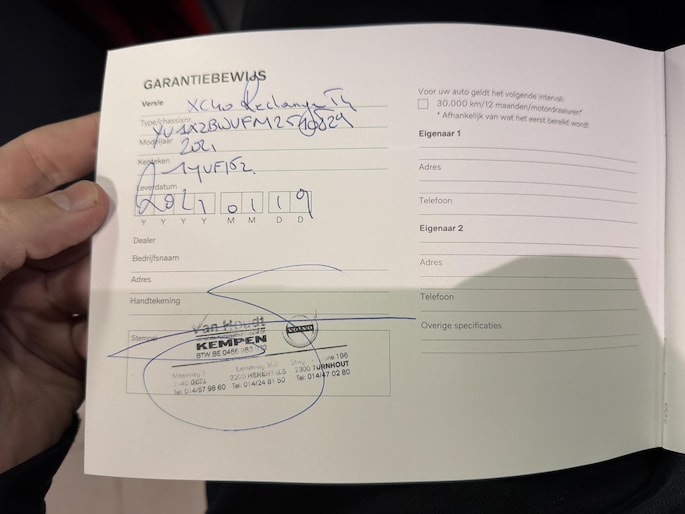 GARANTIEBEWIJS
Versie XC40 Recharge T4
Type/chassisnr.
Modeljaar 2021
Kenteken
Leverdatum
2021 01 19
Y Y Y Y M M D D
Dealer
Bedrijfsnaam
Adres
Handtekening
Stempel
Van Houdt
VOLVO
KEMPEN
BTW BE 0466
2300 TURNHOUT
Tel: 014/57 98 60 Tel: 014/24 81 50 Tel: 014/47 02 80
Voor uw auto geldt het volgende interval:
30.000 km/12 maanden/motordraaiuren*
* Afhankelijk van wat het eerst bereikt wordt
Eigenaar 1
Adres
Telefoon
Eigenaar 2
Adres
Telefoon
Overige specificaties